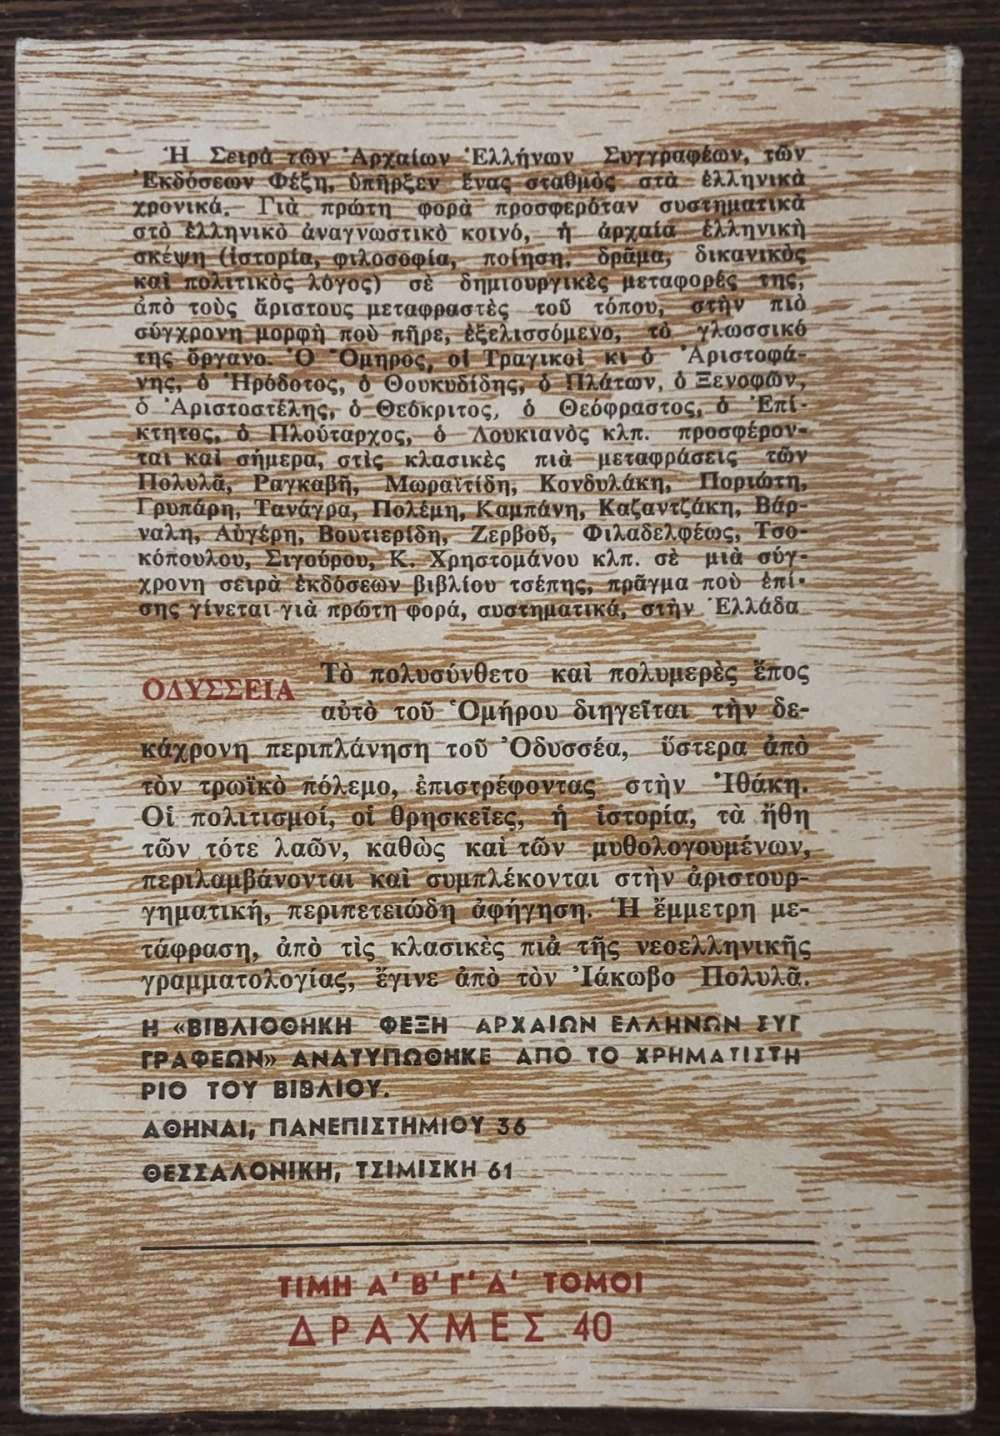 Ἡ Σειρὰ τῶν Ἀρχαίων Ἑλλήνων Συγγραφέων, τῶν
Ἐκδόσεων Φέξη, ὑπῆρξεν ἕνας σταθμὸς στὰ ἑλληνικὰ
χρονικά. Γιὰ πρώτη φορὰ προσφερόταν συστηματικὰ
στὸ ἑλληνικὸ ἀναγνωστικὸ κοινό, ἡ ἀρχαία ἑλληνικὴ
σκέψη (ἱστορία, φιλοσοφία, ποίηση, δράμα, δικανικὸς
καὶ πολιτικὸς λόγος) σὲ δημιουργικὲς μεταφορές της,
ἀπὸ τοὺς ἄριστους μεταφραστὲς τοῦ τόπου, στὴν πιὸ
σύγχρονη μορφὴ ποὺ πῆρε, ἐξελισσόμενο, τὸ γλωσσικό
της ὄργανο. Ὁ Ὅμηρος, οἱ Τραγικοὶ κι ὁ Ἀριστοφά-
νης, ὁ Ἡρόδοτος, ὁ Θουκυδίδης, ὁ Πλάτων, ὁ Ξενοφῶν,
ὁ Ἀριστοστέλης, ὁ Θεόκριτος, ὁ Θεόφραστος, ὁ Ἐπί-
κτητος, ὁ Πλούταρχος, ὁ Λουκιανὸς κλπ. προσφέρον-
ται καὶ σήμερα, στὶς κλασικὲς πιὰ μεταφράσεις τῶν
Πολυλᾶ, Ραγκαβῆ, Μωραϊτίδη, Κονδυλάκη, Ποριώτη,
Γρυπάρη, Τανάγρα, Πολέμη, Καμπάνη, Καζαντζάκη, Βάρ-
ναλη, Αὐγέρη, Βουτιερίδη, Ζερβοῦ, Φιλαδελφέως, Τσο-
κόπουλου, Σιγούρου, Κ. Χρηστομάνου κλπ. σὲ μιὰ σύγ-
χρονη σειρὰ ἐκδόσεων βιβλίου τσέπης, πρᾶγμα ποὺ ἐπί-
σης γίνεται γιὰ πρώτη φορά, συστηματικά, στὴν Ἑλλάδα
ΟΔΥΣΣΕΙΑ Τὸ πολυσύνθετο καὶ πολυμερὲς ἔπος
αὐτὸ τοῦ Ὁμήρου διηγεῖται τὴν δε-
κάχρονη περιπλάνηση τοῦ Ὀδυσσέα, ὕστερα ἀπὸ
τὸν τρωϊκὸ πόλεμο, ἐπιστρέφοντας στὴν Ἰθάκη.
Οἱ πολιτισμοί, οἱ θρησκεῖες, ἡ ἱστορία, τὰ ἤθη
τῶν τότε λαῶν, καθὼς καὶ τῶν μυθολογουμένων,
περιλαμβάνονται καὶ συμπλέκονται στὴν ἀριστουρ-
γηματική, περιπετειώδη ἀφήγηση. Ἡ ἔμμετρη με-
τάφραση, ἀπὸ τὶς κλασικὲς πιὰ τῆς νεοελληνικῆς
γραμματολογίας, ἔγινε ἀπὸ τὸν Ἰάκωβο Πολυλᾶ.
Η «ΒΙΒΛΙΟΘΗΚΗ ΦΕΞΗ ΑΡΧΑΙΩΝ ΕΛΛΗΝΩΝ ΣΥΓ
ΓΡΑΦΕΩΝ» ΑΝΑΤΥΠΩΘΗΚΕ ΑΠΟ ΤΟ ΧΡΗΜΑΤΙΣΤΗ
ΡΙΟ ΤΟΥ ΒΙΒΛΙΟΥ.
ΑΘΗΝΑΙ, ΠΑΝΕΠΙΣΤΗΜΙΟΥ 36
ΘΕΣΣΑΛΟΝΙΚΗ, ΤΣΙΜΙΣΚΗ 61
ΤΙΜΗ Α' Β' Γ' Δ' ΤΟΜΟΙ
ΔΡΑΧΜΕΣ 40